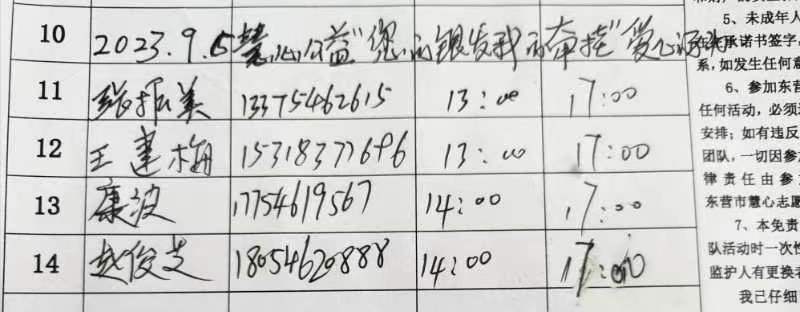 10 2023.9.5慧心公益"您的银发我的牵挂"爱心
11 张振美 13375462615 13:00 17:00
12 王建梅 15318377696 13:00 17:00
13 康波 17754619567 14:00 17:00
14 赵俊芝 18054620888 14:00 17:00
5、未成年人
承诺书签字,
系,如发生任何意
6、参加东营
任何活动,必须
安排;如有违反
团队,一切因参
律责任由参
东营市慧心志愿
7、本免责
队活动时一次性
监护人有更换
我已仔细